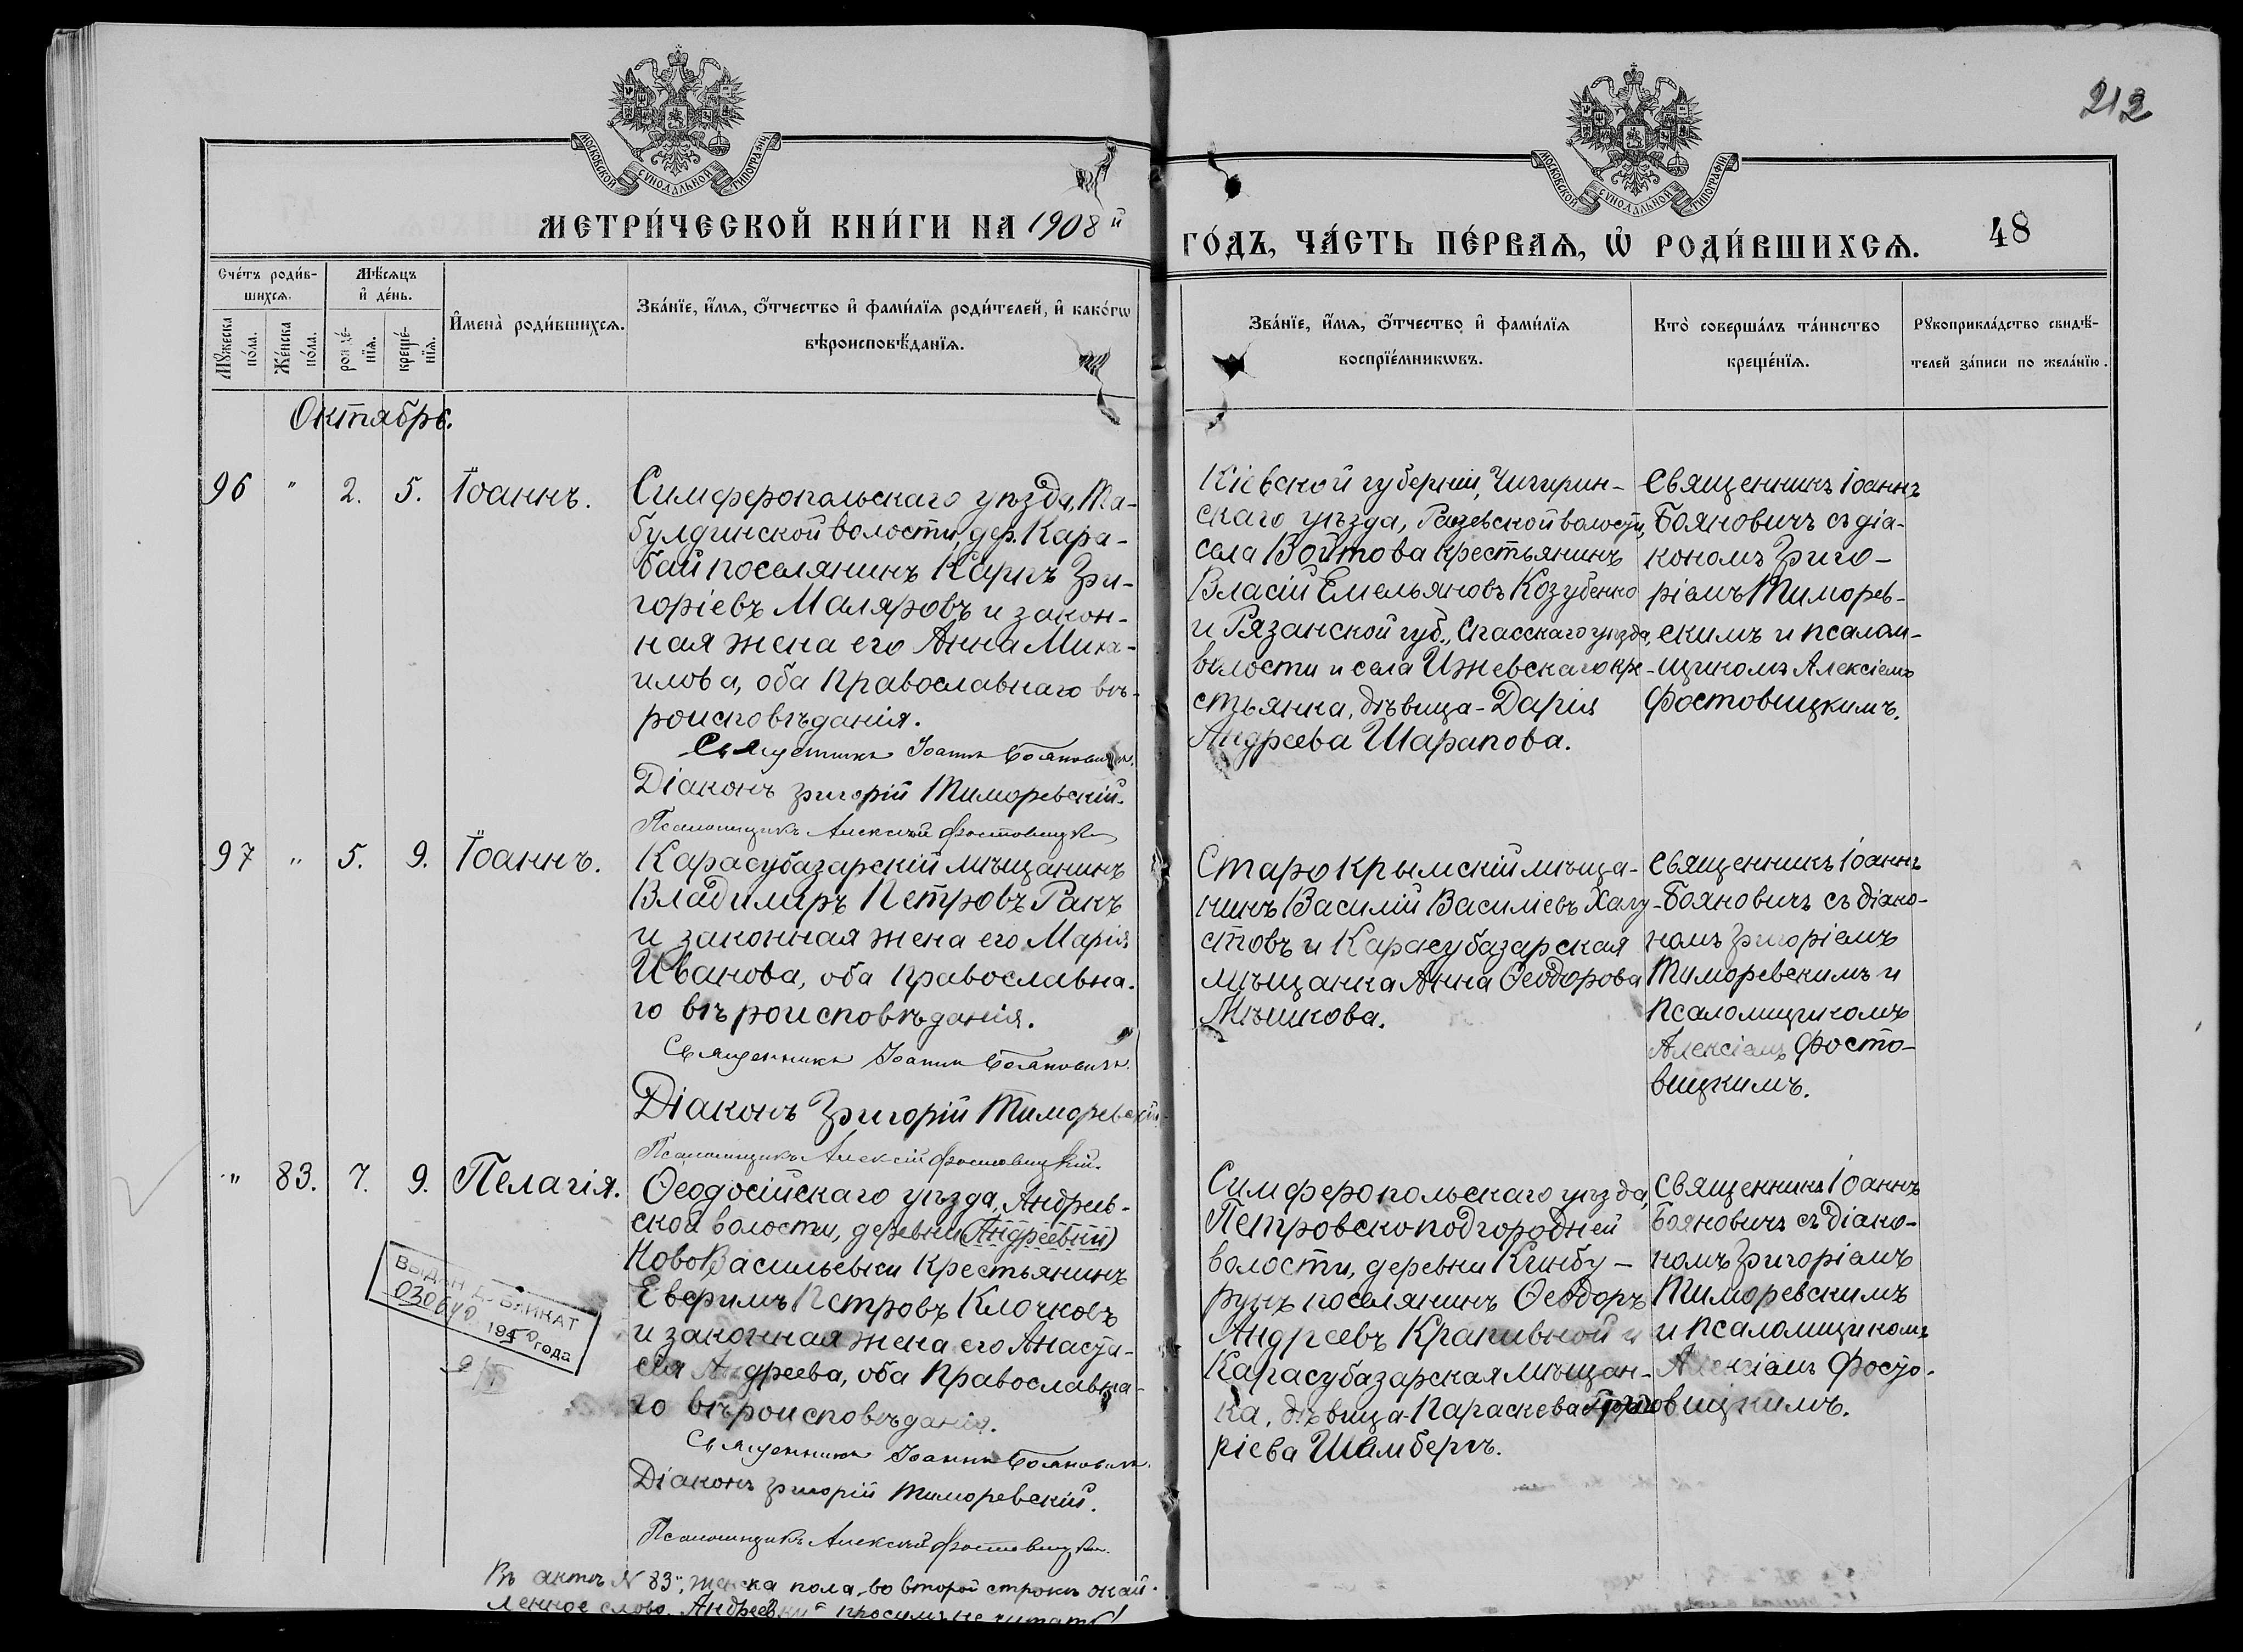 212
МОСКОВСКОЙ СѴНОДАЛЬНОЙ ТИПОГРАФІИ
МОСКОВСКОЙ СѴНОДАЛЬНОЙ ТИПОГРАФІИ
МЕТРИ́ЧЕСКОЙ КНИ́ГИ НА 1908й
ГО́ДЪ, ЧА́СТЬ ПЕ́РВАѦ, Ѡ҆ РОДИ́ВШИХСѦ.
48
Сче́тъ роди́в-
шихсѧ.
Мѣ́сѧцъ
и҆ де́нь.
Мꙋ́жеска
по́ла.
Же́нска
по́ла.
рожде́-
нїѧ.
креще́-
нїѧ.
И҆мена̀ роди́вшихсѧ.
Зва́нїе, и҆́мѧ, ѻ҆́тчество и҆ фами́лїѧ роди́телей, и҆ како́гѡ
вѣроисповѣ́данїѧ.
Зва́нїе, и҆́мѧ, ѻ҆́тчество и҆ фами́лїѧ
воспрїе́мникѡвъ.
Кто̀ соверша́лъ та́инство
креще́нїѧ.
Рꙋкоприкла́дство свидѣ́-
телей за́писи по жела́нїю.
Октябрь.
96 " 2. 5. Іоаннъ.
Симферопольскаго уѣзда, Та-
булдинской волости, дер. Кара-
бай поселянинъ Карпъ Гри-
горіевъ Маляровъ и закон-
ная жена его Анна Миха-
илова, оба Православнаго вѣ-
роисповѣданія.
Священникъ Іоаннъ Бояновичъ.
Діаконъ Григорій Тиморевскій.
Псаломщикъ Алексѣй Фостовицкій
Кіевской губерніи, Чигирин-
скаго уѣзда, волости,
села Войтова крестьянинъ
Власій Емельяновъ Козубенко
и Рязанской губ., Спасскаго уѣзда,
волости и села Ижевскаго кре-
стьянка, дѣвица - Дарія
Андреева Шарапова.
Священникъ Іоаннъ
Бояновичъ съ діа-
кономъ Григо-
ріемъ Тиморев-
скимъ и псалом-
щикомъ Алексіемъ
Фостовицкимъ.
97 " 5. 9. Іоаннъ.
Карасубазарскій мѣщанинъ
Владимиръ Петровъ Ракъ
и законная жена его Марія
Иванова, оба православна-
го вѣроисповѣданія.
Священникъ Іоаннъ Бояновичъ.
Діаконъ Григорій Тиморевскій.
Псаломщикъ Алексій Фостовицкій.
Старокрымскій мѣща-
нинъ Василій Василіевъ
и Карасубазарская
мѣщанка Анна Ѳеодорова
Мѣшкова.
Священникъ Іоаннъ
Бояновичъ съ діако-
номъ Григоріемъ
Тиморевскимъ и
псаломщикомъ
Алексіемъ Фосто-
вицкимъ.
" 83. 7. 9. Пелагія.
Ѳеодосійскаго уѣзда, Андреев-
ской волости, деревни (Андреевки)
НовоВасильевки крестьянинъ
Евфимъ Петровъ Клочковъ
и законная жена его Анаста-
сія Андреева, оба Православна-
го вѣроисповѣданія.
Священникъ Іоаннъ Бояновичъ.
Діаконъ Григорій Тиморевскій.
Псаломщикъ Алексѣй Фостовицкій.
Симферопольскаго уѣзда,
Петровскоподгородней
волости, деревни Кинбу-
рунъ поселянинъ Ѳеодоръ
Андреевъ Крапивной и
Карасубазарская мѣщан-
ка, дѣвица - Параскева Григо-
ріева Шамбергъ.
Священникъ Іоаннъ
Бояновичъ съ діако-
номъ Григоріемъ
Тиморевскимъ
и псаломщикомъ
Алексіемъ Фосто-
вицкимъ.
ВЫДАН ДУБЛИКАТ
1950 года
Въ актѣ № 83й, женска пола, во второй строкѣ окай-
ленное слово „Андреевки" просимъ не читать!